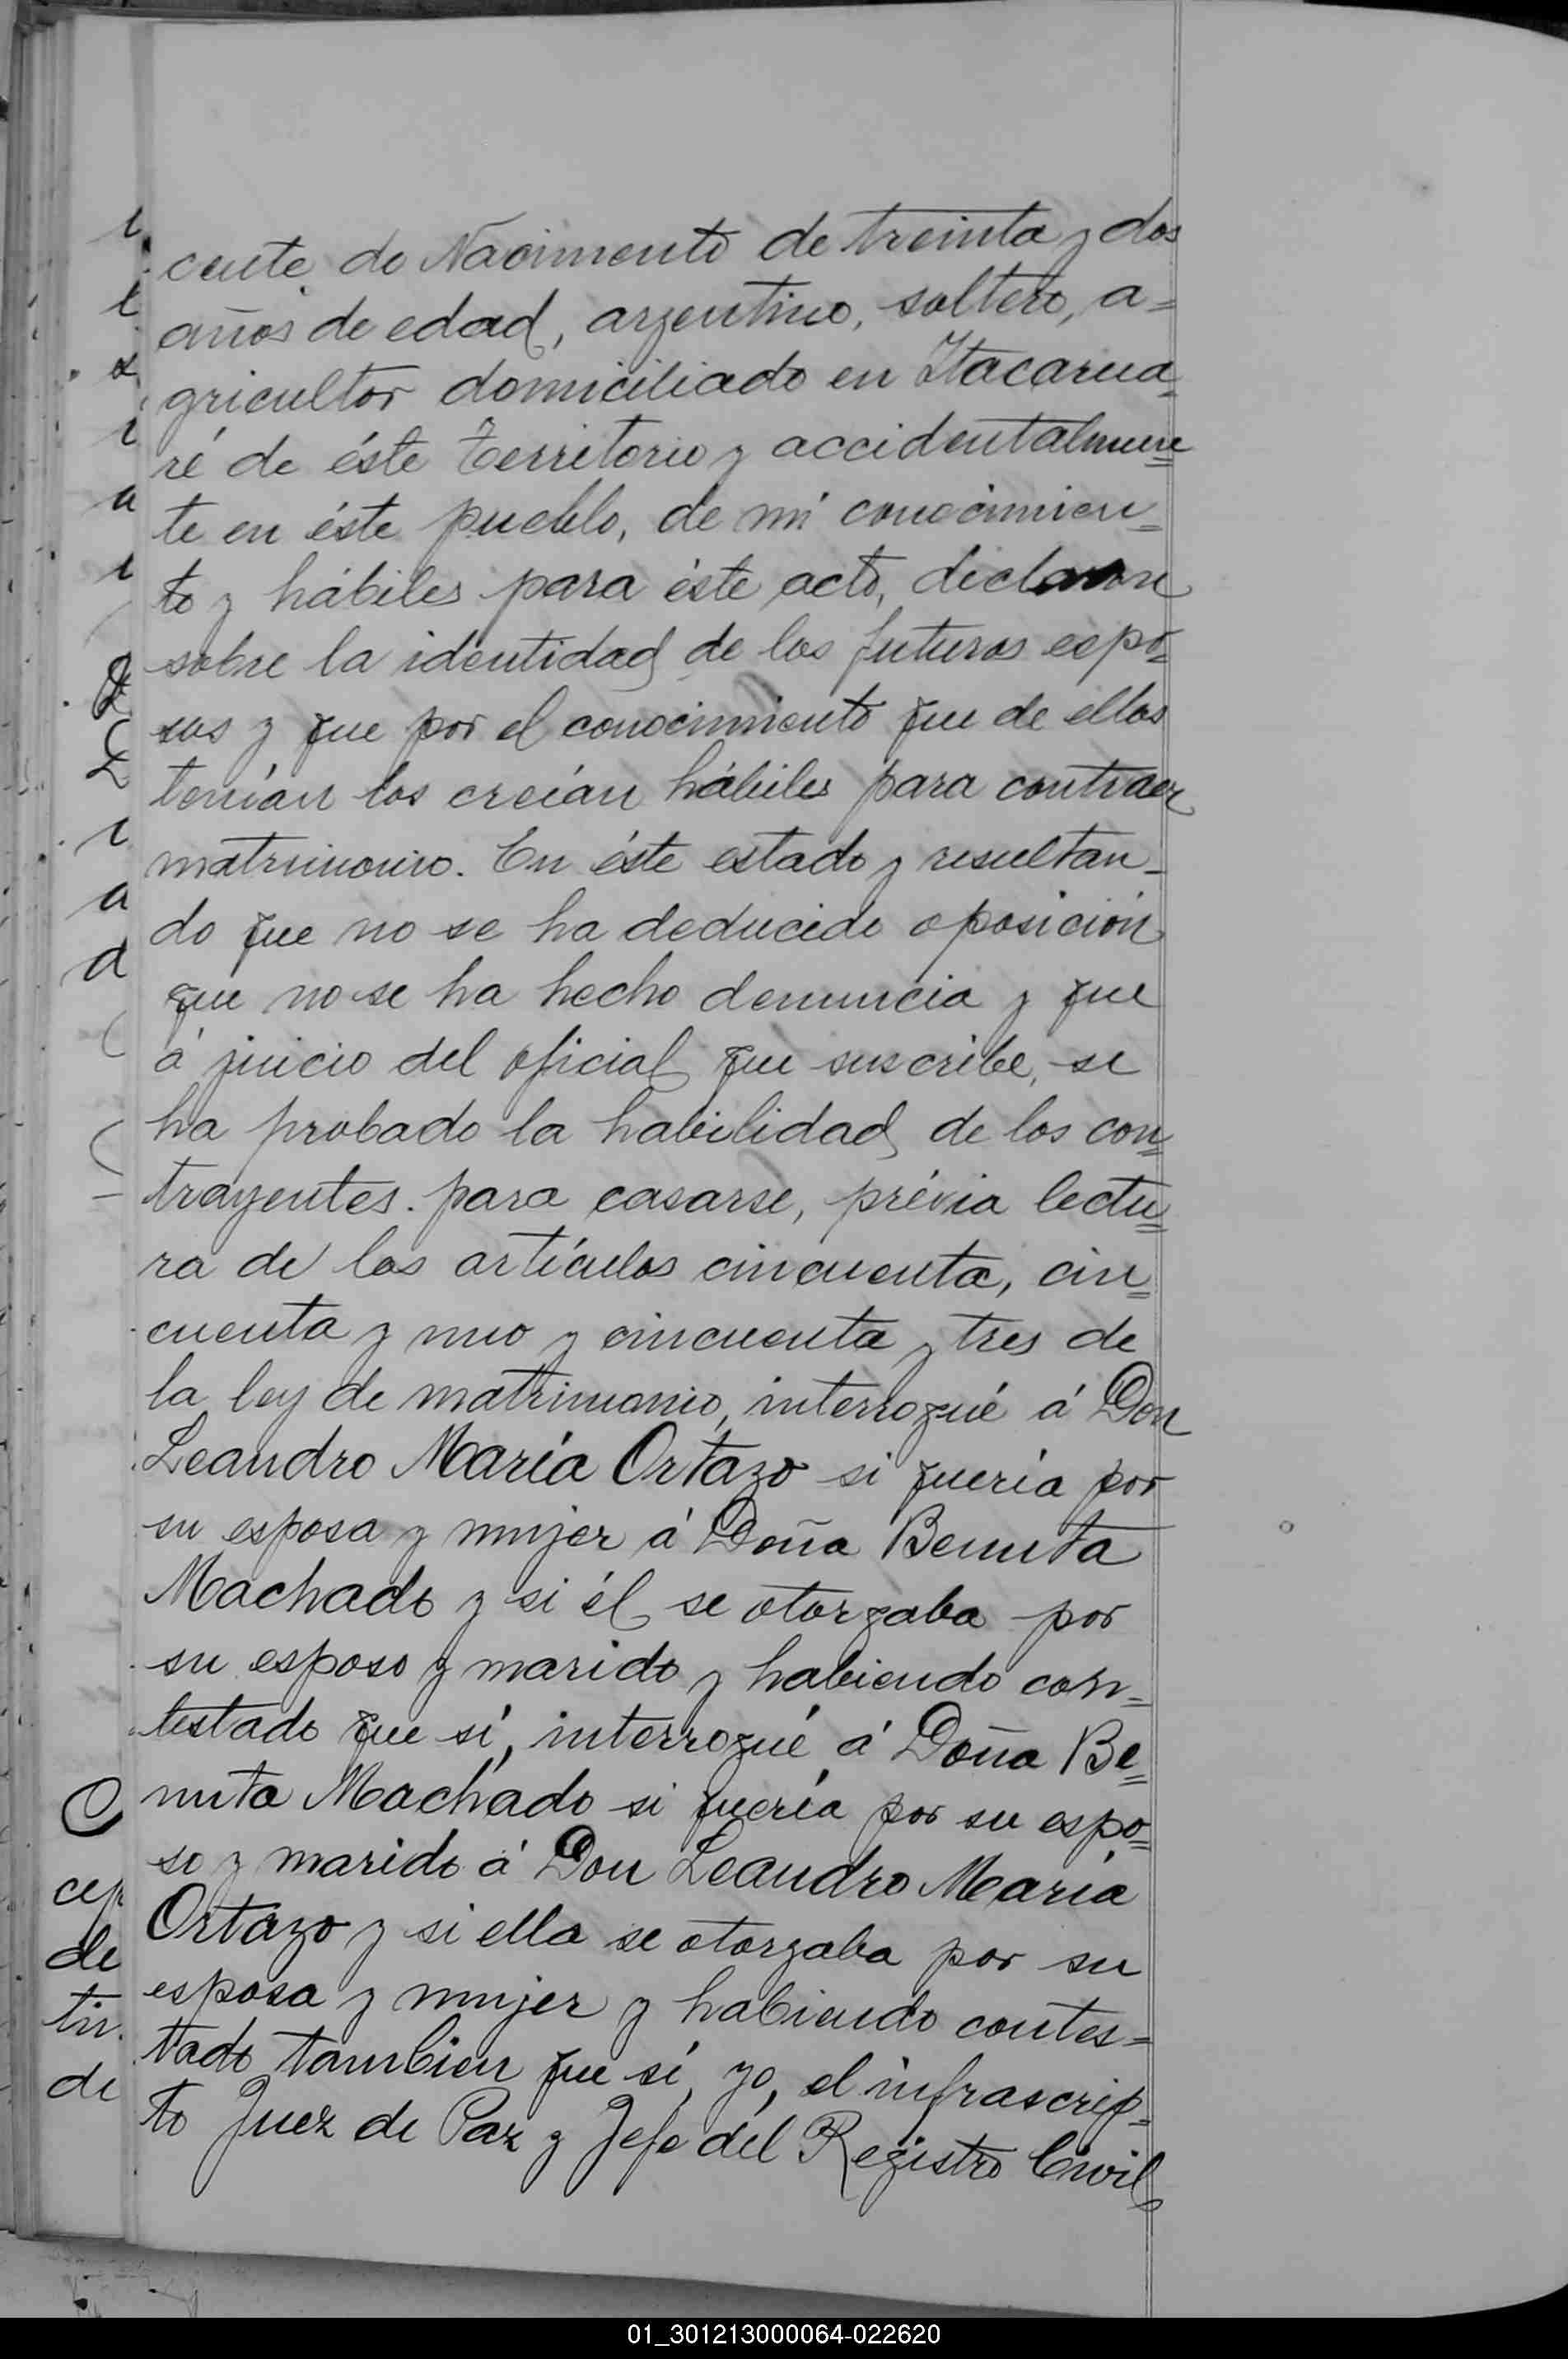 cente do Nacimento de treinta y dos
años de edad, argentino, soltero, a=
gricultor domiciliado en Itacarua=
ré de éste territorio y accidentalmen=
te en éste pueblo, de mi conocimien=
to y hábiles para éste acto, declaran
sobre la identidad de los futuros espo=
sos y que por el conocimiento que de ellos
tenían los creían hábiles para contraer
matrimonio. En éste estado y resultan=
do que no se ha deducido oposición
que no se ha hecho denuncia y que
á juicio del oficial que suscribe, se
ha probado la habilidad de los con=
trayentes para casarse, prévia lectu=
ra de los artículos cincuenta, cin=
cuenta y uno y cincuenta y tres de
la ley de matrimonio, interrogué á Don
Leandro María Ortazo si quería por
su esposa y mujer á Doña Benita
Machado y si él se otorgaba por
su esposo y marido y habiendo con=
testado que sí, interrogué á Doña Be=
nita Machado si quería por su espo=
so y marido á Don Leandro María
Ortazo y si ella se otorgaba por su
esposa y mujer y habiendo contes=
tado tambien que sí, yo, el infrascrip=
to Juez de Paz y Jefe del Registro Civil
01_301213000064-022620